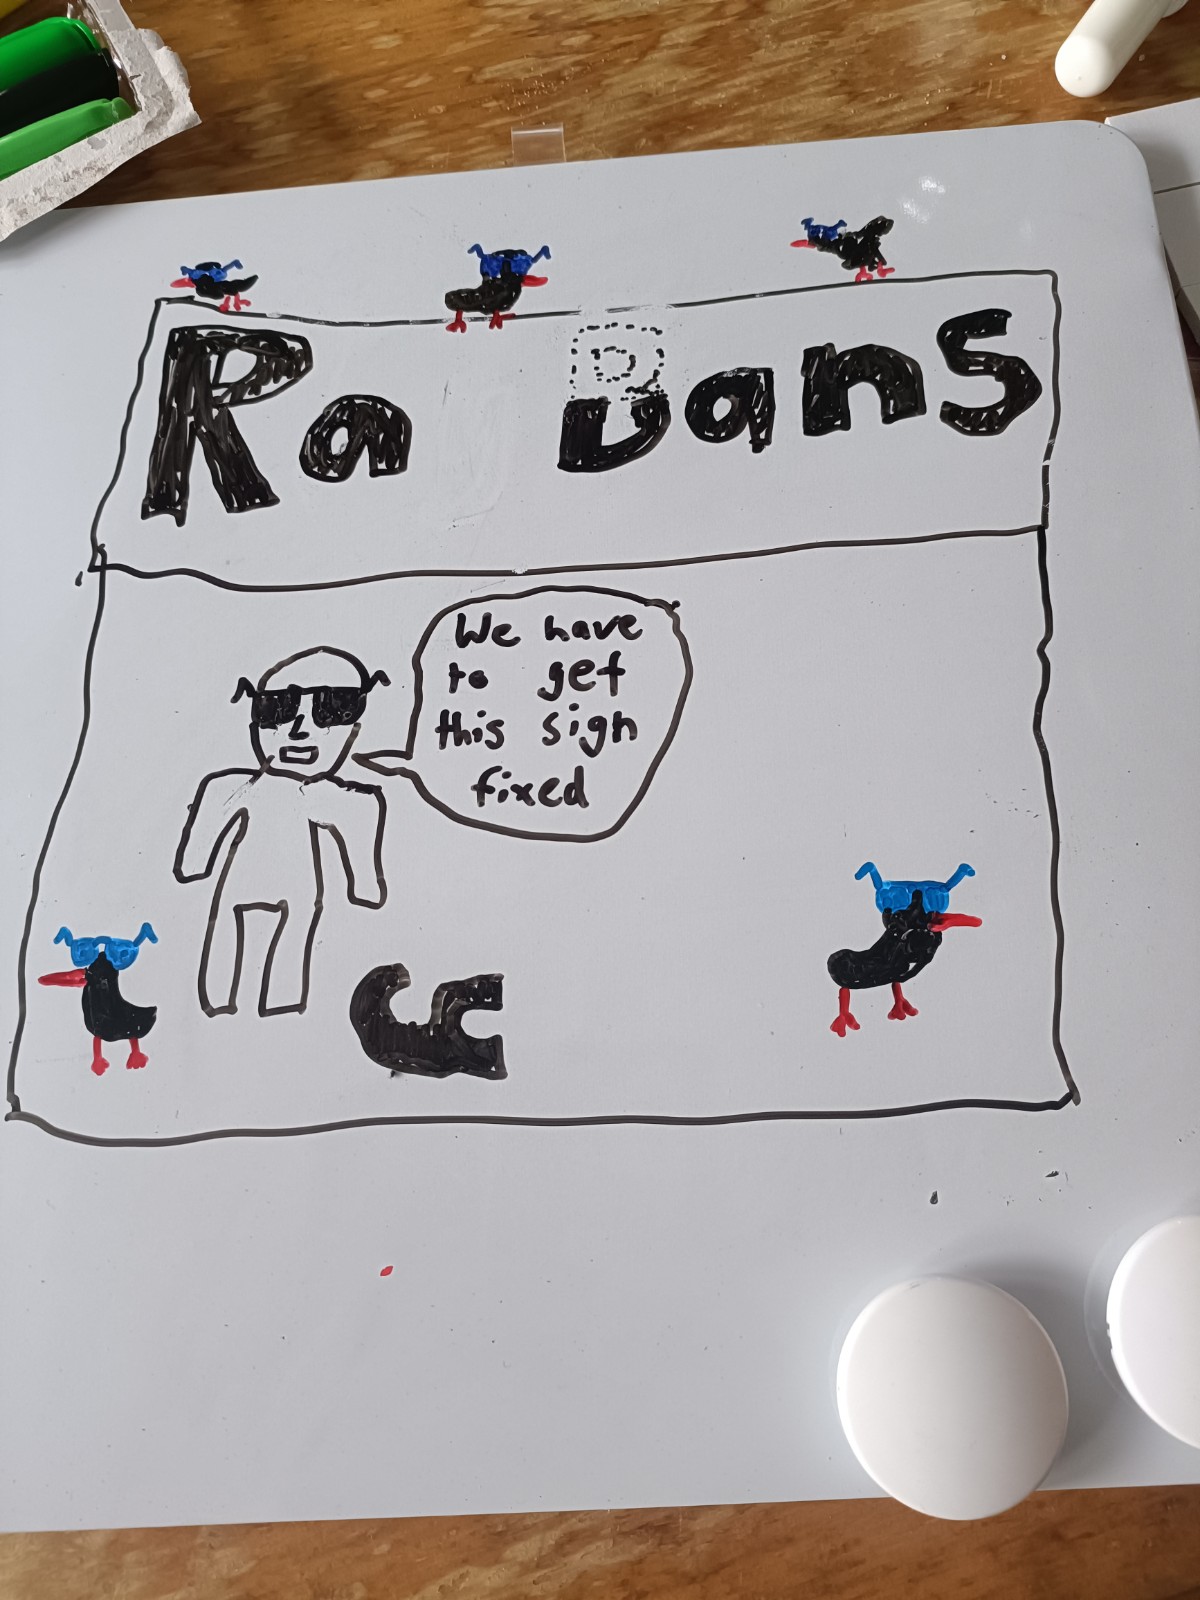 Ra Bans
We have
to get
this sign
fixed
y